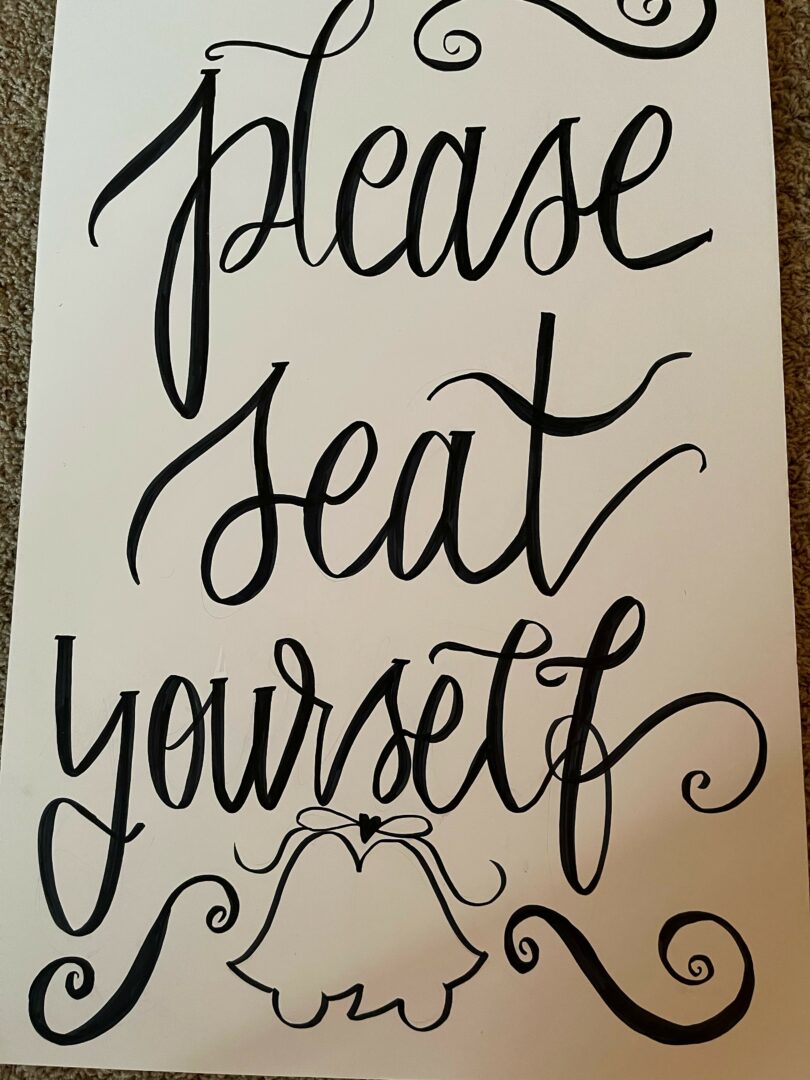 please
seat
yourself